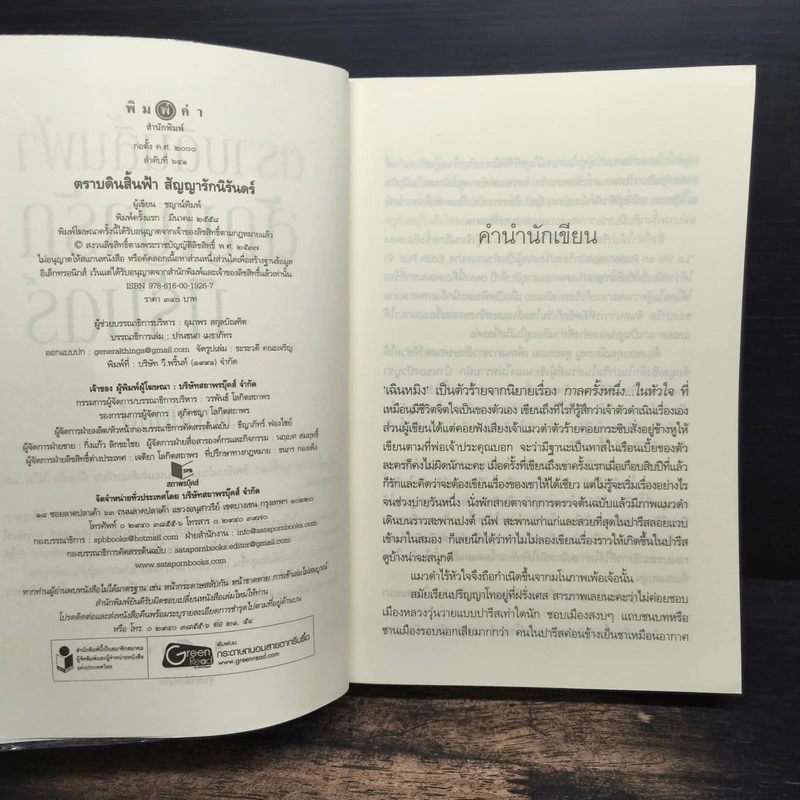 พิมพ์คำ
สำนักพิมพ์
ก่อตั้ง ค.ศ. ๒๐๐๐
ลำดับที่ ๖๔๑
ตราบดินสิ้นฟ้า สัญญารักนิรันดร์
ผู้เขียน : ชญาน์พิมพ์
พิมพ์ครั้งแรก : มีนาคม ๒๕๕๘
พิมพ์โฆษณาครั้งนี้ได้รับอนุญาตจากเจ้าของลิขสิทธิ์ตามกฎหมายแล้ว
© สงวนลิขสิทธิ์ตามพระราชบัญญัติลิขสิทธิ์ พ.ศ. ๒๕๓๗
ไม่อนุญาตให้สแกนหนังสือ หรือคัดลอกเนื้อหาส่วนหนึ่งส่วนใดเพื่อสร้างฐานข้อมูล
อิเล็กทรอนิกส์ เว้นแต่ได้รับอนุญาตจากสำนักพิมพ์และเจ้าของลิขสิทธิ์แล้วเท่านั้น
ISBN 978-616-00-1926-7
ราคา ๓๔๐ บาท
ผู้ช่วยบรรณาธิการบริหาร : อุมาพร สกุลบัณฑิต
บรรณาธิการเล่ม : ปานชนก เมฆาภัทร
ออกแบบปก : generalthings@gmail.com จัดรูปเล่ม : ชะระวดี คณะเจริญ
พิมพ์ที่ : บริษัท วี.พริ้นท์ (๑๙๙๑) จำกัด
เจ้าของ ผู้พิมพ์ผู้โฆษณา : บริษัทสถาพรบุ๊คส์ จำกัด
กรรมการผู้จัดการ/บรรณาธิการบริหาร : วรพันธ์ โลกิตสถาพร
รองกรรมการผู้จัดการ : สุภัชชญา โลกิตสถาพร
ผู้จัดการฝ่ายผลิต/หัวหน้ากองบรรณาธิการคัดสรรต้นฉบับ : ชีญาภัทร์ ฟองไชย์
ผู้จัดการฝ่ายขาย : กิ่งแก้ว ลิกขะไชย ผู้จัดการฝ่ายสื่อสารองค์กรและกิจกรรม : นฤเบศ สมฤทธิ์
ผู้จัดการฝ่ายลิขสิทธิ์ต่างประเทศ : เจติยา โลกิตสถาพร ที่ปรึกษาทางกฎหมาย : ธนากร กองเพ็ง
SPB
สถาพรบุ๊คส์
จัดจำหน่ายทั่วประเทศโดย บริษัทสถาพรบุ๊คส์ จำกัด
๑๘ ซอยลาดปลาเค้า ๖๓ ถนนลาดปลาเค้า แขวงอนุสาวรีย์ เขตบางเขน กรุงเทพฯ ๑๐๒๒๐
โทรศัพท์ ๐ ๒๙๔๐ ๓๘๕๕-๖ โทรสาร ๐ ๒๙๔๐ ๓๙๗๐
กองบรรณาธิการ : spbbooks@hotmail.com ฝ่ายสำนักงาน : info@satapornbooks.com
กองบรรณาธิการคัดสรรต้นฉบับ : satapornbooks.editor@gmail.com
www.satapornbooks.com
หากท่านผู้อ่านพบหนังสือไม่ได้มาตรฐาน เช่น หน้ากระดาษสลับกัน หน้าขาดหาย การเข้าเล่มไม่สมบูรณ์
สำนักพิมพ์ยินดีรับผิดชอบเปลี่ยนหนังสือเล่มใหม่ให้ท่าน
โปรดติดต่อและส่งหนังสือคืนพร้อมระบุรายละเอียดการชำรุดไปตามที่อยู่ด้านบน
หรือ โทร. ๐ ๒๙๔๐ ๓๘๕๕-๖ ต่อ ๒๑, ๕๔
สำนักพิมพ์นี้เป็นสมาชิกสมาคม
ผู้จัดพิมพ์และผู้จำหน่ายหนังสือ
แห่งประเทศไทย
Green Read
พิมพ์บน
กระดาษถนอมสายตากรีนรี้ด
www.greenread.com
คำนำนักเขียน
'เฉินหมิง' เป็นตัวร้ายจากนิยายเรื่อง กาลครั้งหนึ่ง...ในหัวใจ ที่
เหมือนมีชีวิตจิตใจเป็นของตัวเอง เขียนถึงทีไรก็รู้สึกว่าเจ้าตัวดำเนินเรื่องเอง
ส่วนผู้เขียนได้แต่คอยฟังเสียงเจ้าแมวดำตัวร้ายคอยกระซิบสั่งอยู่ข้างหูให้
เขียนตามที่พ่อเจ้าประคุณบอก จะว่ามีฐานะเป็นทาสในเรือนเบี้ยของตัว
ละครก็คงไม่ผิดนักนะคะ เมื่อครั้งที่เขียนถึงเขาครั้งแรกเมื่อเกือบสิบปีที่แล้ว
ก็รักและคิดว่าจะต้องเขียนเรื่องของเขาให้ได้เชียว แต่ไม่รู้จะเริ่มเรื่องอย่างไร
จนช่วงบ่ายวันหนึ่ง นั่งพักสายตาจากการตรวจต้นฉบับแล้วมีภาพแมวดำ
เดินบนราวสะพานปงต์ เนิฟ สะพานเก่าแก่และสวยที่สุดในปารีสลอยแวบ
เข้ามาในสมอง ก็เลยนึกได้ว่าทำไมไม่ลองเขียนเรื่องราวให้เกิดขึ้นในปารีส
ดูบ้างน่าจะสนุกดี
แมวดำไร้หัวใจจึงถือกำเนิดขึ้นจากมโนภาพเพ้อเจ้อนั้น
สมัยเรียนปริญญาโทอยู่ที่ฝรั่งเศส สารภาพเลยนะคะว่าไม่ค่อยชอบ
เมืองหลวงวุ่นวายแบบปารีสเท่าใดนัก ชอบเมืองสงบๆ แถบชนบทหรือ
ชานเมืองรอบนอกเสียมากกว่า คนในปารีสค่อนข้างเย็นชาเหมือนอากาศ